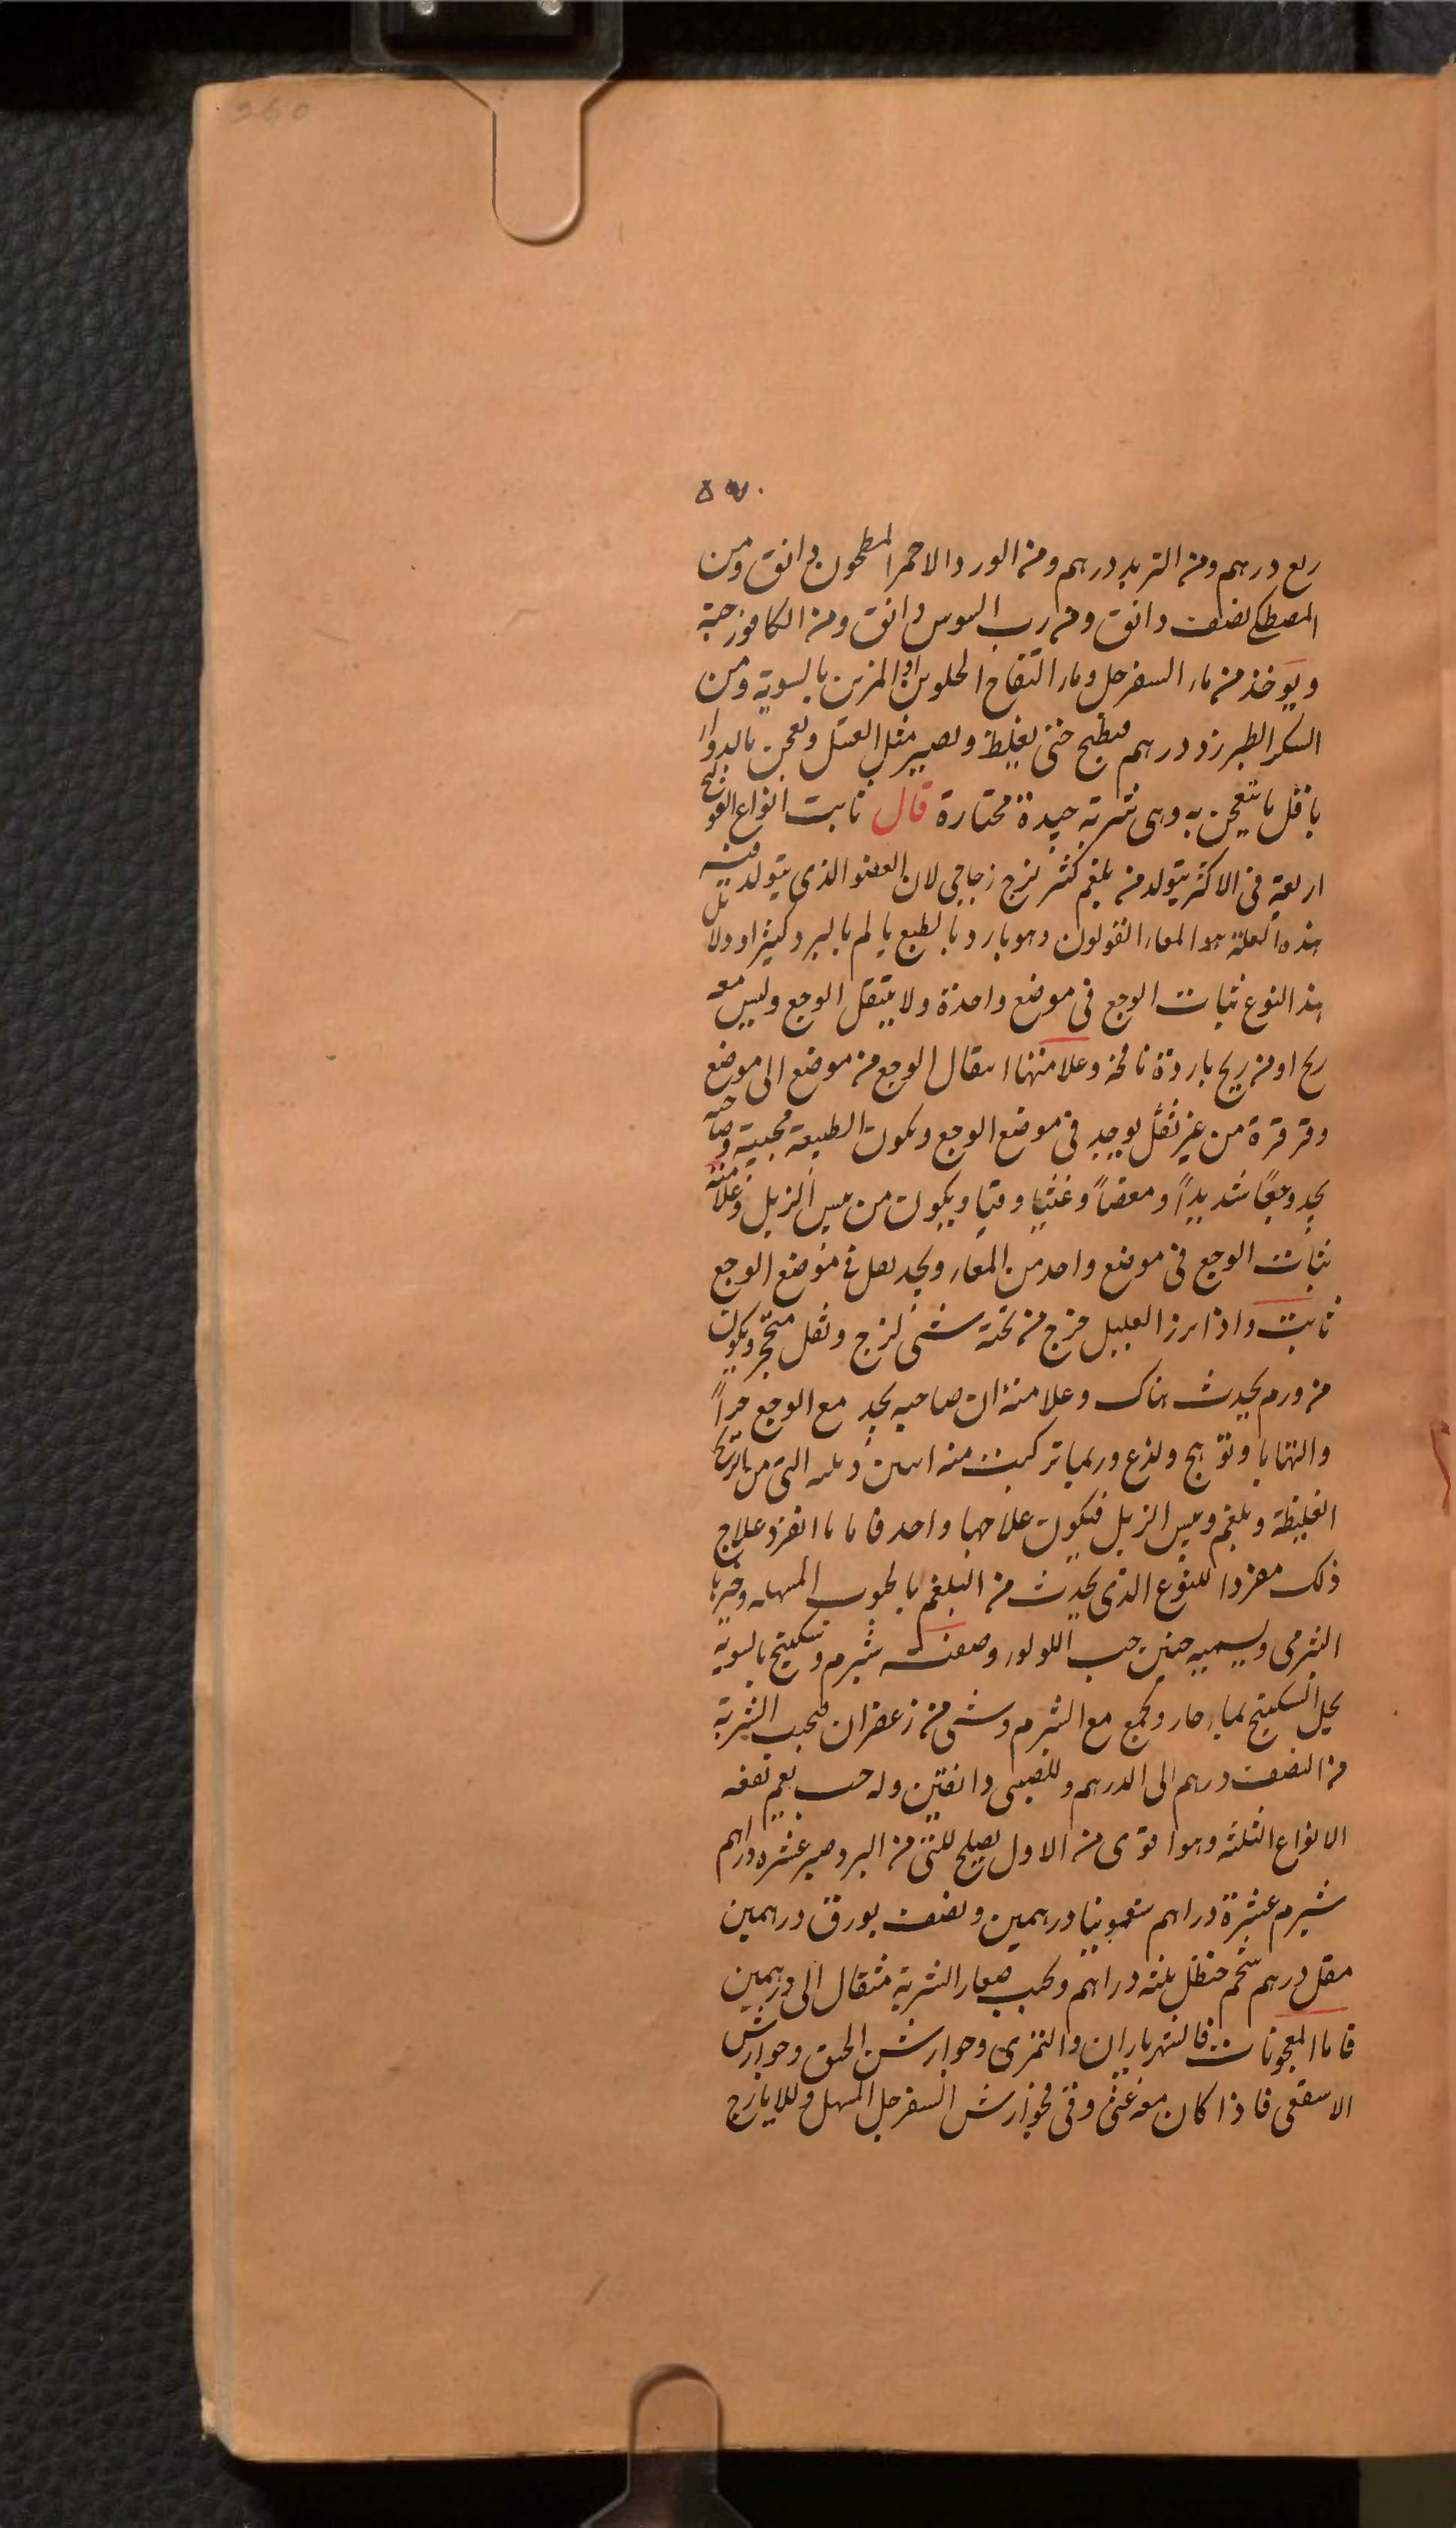 260
٥٧٠
ربع درهم ومن التربد درهم ومن الورد الاحمر المطحون دانق ومن
المصطكى نصف دانق ومن رب السوس دانق ومن الكافور حبة
ويوخذ من ماء السفرجل وماء التفاح الحلوين او المزين بالسوية ومن
السكر الطبرزد درهم فيطبخ حتى يغلظ ويصير مثل العسل ويعجن بالدواء
باقل ما يتعجن به وهى شربة جيدة مختارة قال ثابت انواع القولنج
اربعة فى الاكثر يتولد من بلغم لزج زجاجى لان العضو الذى يتولد فيه
هذه العلة هو المعاء القولون وهو بارد بالطبع يالم بالبرد كثيرا ودلائل
هذا النوع ثبات الوجع فى موضع واحدة ولا ينتقل الوجع وليس معه
ريح او من ريح باردة نافخة وعلامتها انتقال الوجع من موضع الى موضع
وقرقرة من غير ثقل يوجد فى موضع الوجع ويكون الطبيعة وصاحبه
يجد وجعًا شديدًا ومغصًا وغثيا وقيا ويكون من يبس الزبل وعلامته
ثبات الوجع فى موضع واحد من المعاء ويجد ثقل فى موضع الوجع
ثابت واذا برز العليل خرج من تحته شئ لزج وثفل متحجر ويكون
من ورم يحدث هناك وعلامته ان صاحبه يجد مع الوجع حرًا
والتهابا وتوهج ولذع وربما تركبت منه التى من الريح
الغليظة وبلغم ويبس الزبل فيكون علاجها واحد فاما ما انفرد علاج
ذلك مفردا للنوع الذى يحدث من البلغم بالحبوب المسهله وخيرها
الشرمى ويسميه حنين حب اللولو وصفته شبرم وسكبينج بالسوية
يحل السكبينج بماء حار ويجمع مع الشبرم وشئ من زعفران فيحبب الشربة
من النصف درهم الى الدرهم وللصبى دانقين وله حب يعم نفعه
الانواع الثلثه وهو اقوى من الاول يصلح من البرد صبر عشره دراهم
شبرم عشرة دراهم سقمونيا درهمين ونصف بورق درهمين
مقل درهم شحم حنظل ثلثه دراهم ويحبب صغار الشربة مثقال الى درهمين
فاما المعجونات فالشهرياران والتمرى وجوارشن وجوارش
الاسقفى فاذا كان معه غثى وقئ فجوارش السفرجل المسهل وللايارج